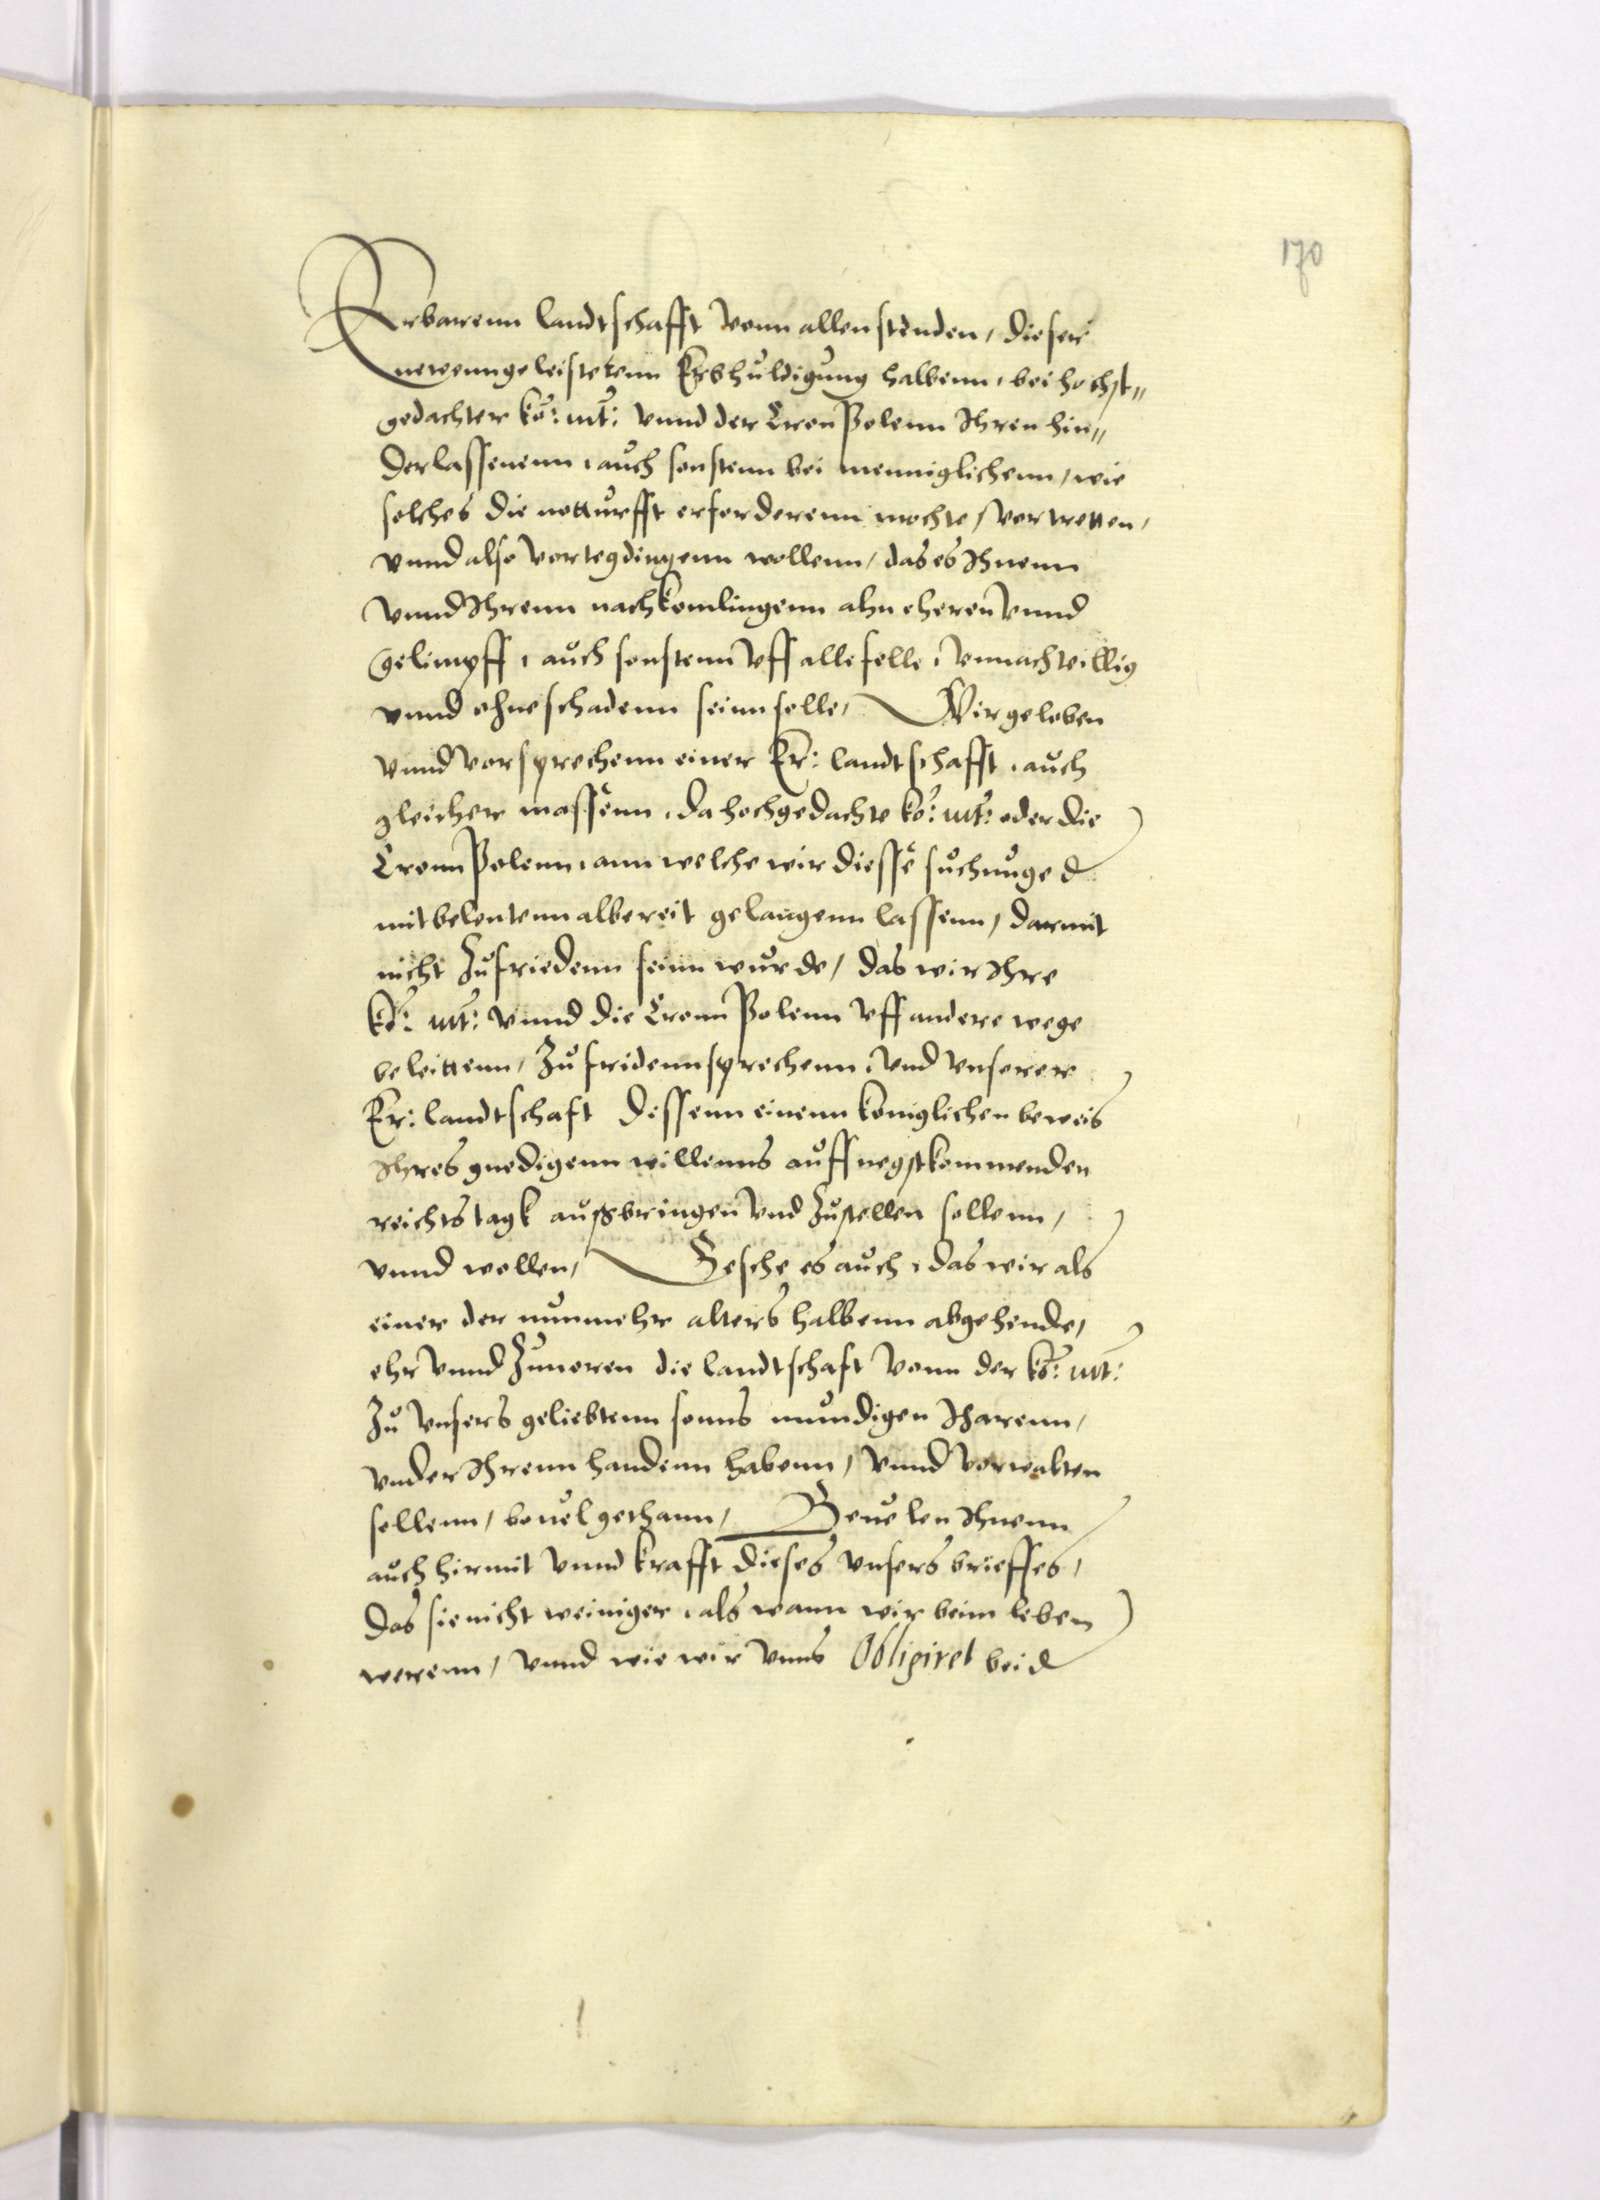 170
Erbarenn landtschafft vonn allen stenden, dieser
newenngeleistetenn Erbhuldigung halbenn, bei hochst„
gedachter kö: mt: vnnd der Cron Polenn Ihren hin„
derlassenenn, auch sonstenn bei menniglichenn, wie
solches die notturfft erforderenn mochte, vortretten,
vnnd also vortegdingenn wollenn, das es Ihnenn
vnnd Ihrenn nachkomlingenn ahn eheren vnnd
gelimpff, auch sonstenn vff alle felle, vnnachteillig
vnnd ohne schadenn seinn solle, Wir geloben
vnnd vorsprechenn einer Er: landtschafft, auch
gleicher massenn, da hochgedachte kö: mt: oder die
Cronn Polenn, ann welche wir diesse suchunge d
mitbelentenn albereit gelangenn lassenn, darmit
nicht Zufriedenn seinn wurde, das wir Ihre
kö: mt: vnnd die Cronn Polenn vff andere wege
beleittenn, Zufridennsprechenn, vnd vnserer
Er: landtschaft dessenn einenn koniglichen beweis
Ihres gnedigenn willenns auff negstkommenden
reichstagk außbringen vnd Zustellen sollenn,
vnnd wollen, Gesche es auch, das wir als
einer der nunmehr alters halbenn abgehende,
ehr vnnd Zuuoren die landtschaft vonn der kö: mt:
Zu vnsers geliebtenn sonns mundigen Iharenn,
vnder Ihrenn handenn habenn, vnnd vorwalten
sollenn, beuel gethann, Beuelen Ihnenn
auch hirmit vnnd krafft dieses vnsers brieffes,
das sie nicht weiniger, als wann wir beim leben
werenn, vnnd wie wir vnns Obligiret bei d